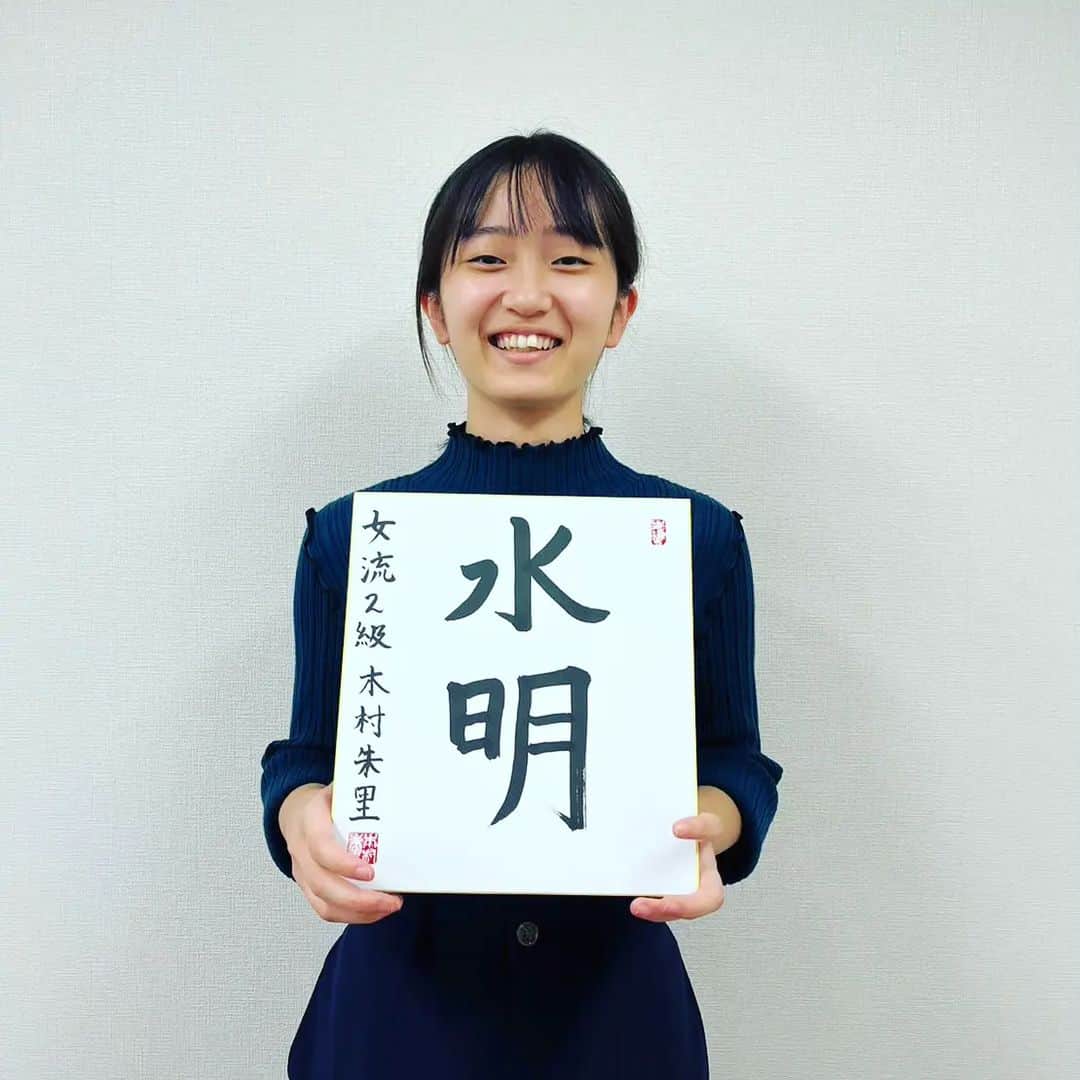 水明
女流2級 木村朱里